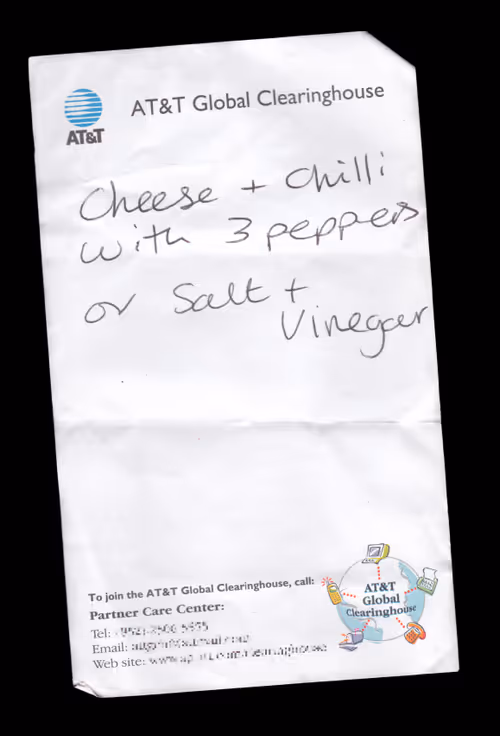 AT&T
AT&T Global Clearinghouse
Cheese + Chilli
with 3 peppers
or Salt +
Vinegar
To join the AT&T Global Clearinghouse, call:
Partner Care Center:
Tel:
Email:
Web site:
AT&T
Global
Clearinghouse